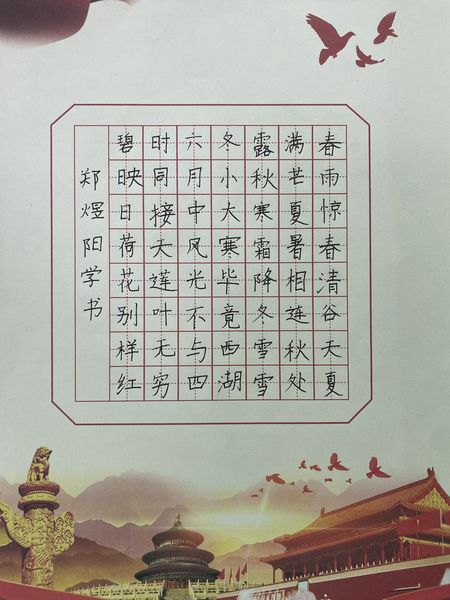 春雨惊春清谷天夏
满芒夏暑相连秋处
露秋寒霜降冬雪雪
冬小大寒毕竟西湖
六月中风光不与四
时同接天莲叶无穷
碧映日荷花别样红
郑煜阳学书